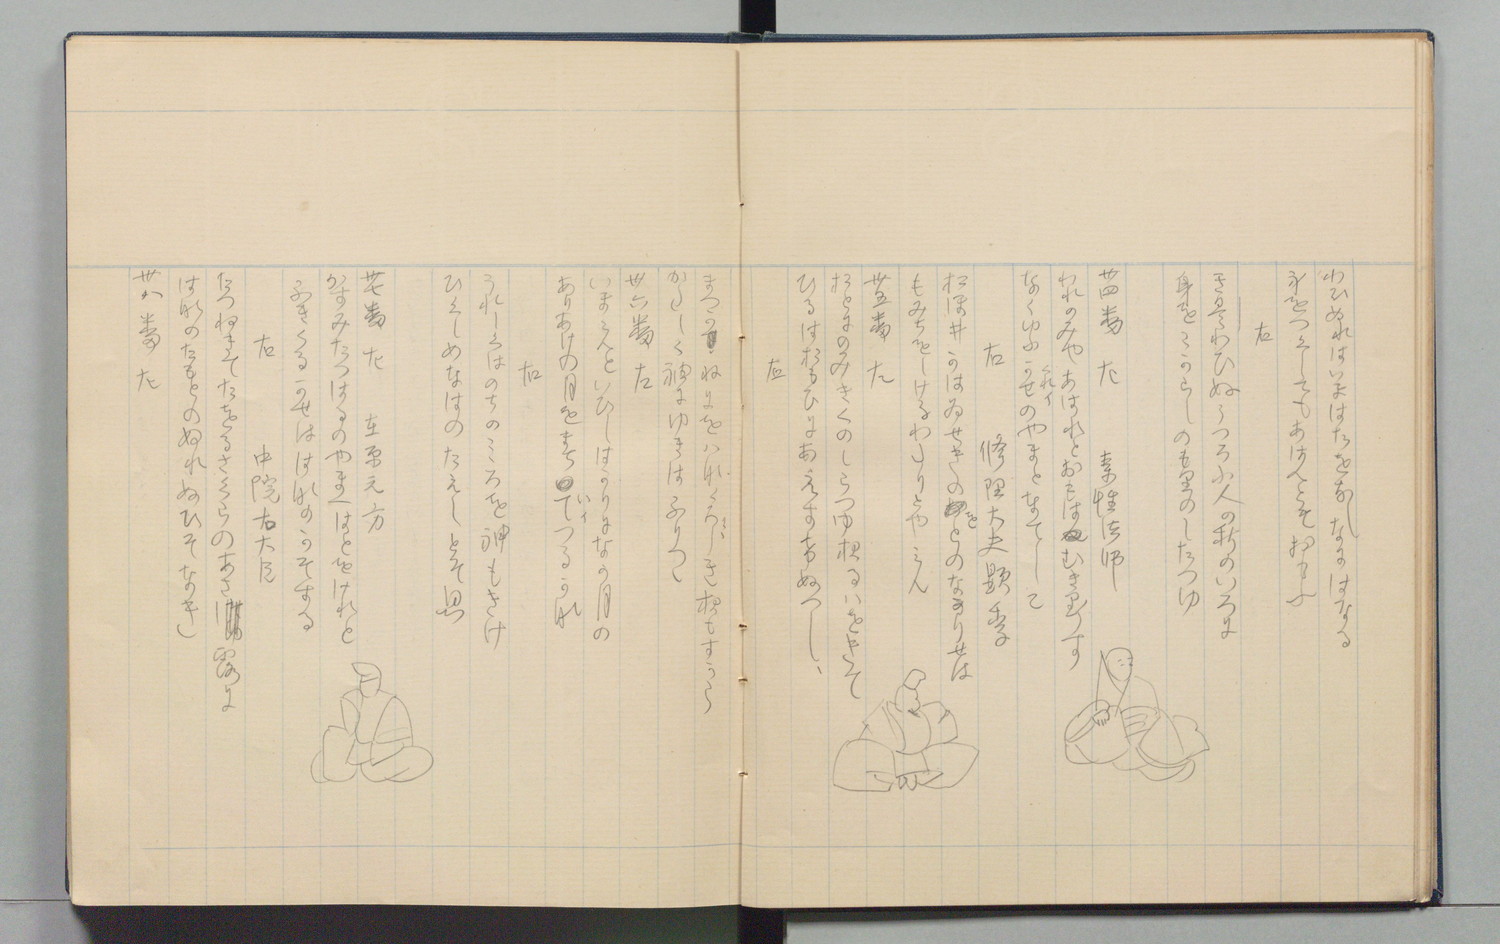 わひぬれはいまはたをなしなにはなる
身をつくしてもあはんとそおもふ
右
うつろふ人の秋のいろに
身をこからしのもりのしたつゆ
卅四番 左 素性法師
われのみやあはれとおもはむきりきりす
なくゆふかせのやまとなてしこ
くれイ
右 修理大夫顕季
おほ井かはゐせきのをとのなかりせは
もみちをしけるわたりとやみん
卅五番 左
おとにのみきくのしらつゆ夜るはをきて
ひるはおもひにあえすけぬへし
右
まつかねにをはなかりしき夜もすから
かたしく袖にゆきはふりつゝ
卅六番 左
いまこんといひしはかりになか月の
ありあけの月をまちてつるかな
いイ
右
うれしくはのちのこころを神もきけ
ひくしめなはのたえしとそ思
卅七番 左 在原元方
かすみたつはるのやまへはとをけれと
ふきくるかせははなのかそする
右 中院右大臣
たつねきてたをるさくらのあさ露に
はなのたもとのぬれぬひそなき
卅八番 左